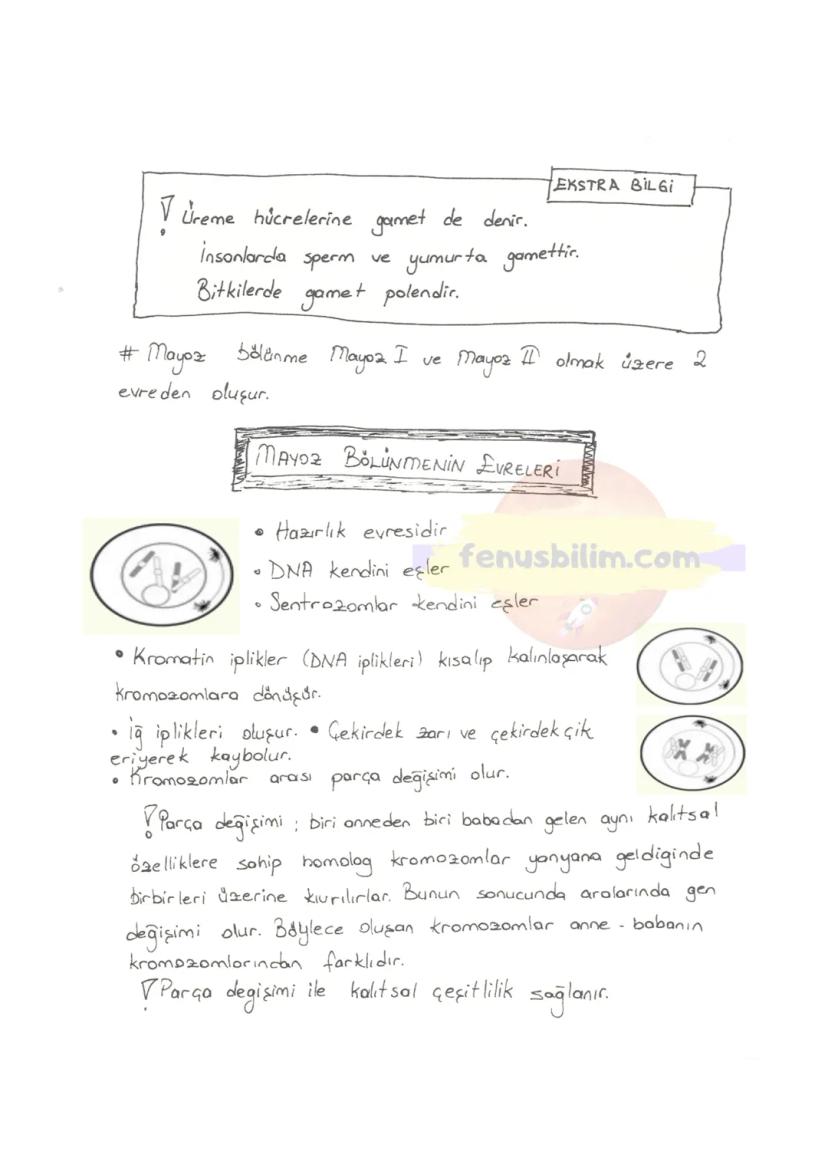 EKSTRA BİLGİ
! Üreme hücrelerine gamet de denir.
İnsanlarda sperm ve yumurta gamettir.
Bitkilerde gamet polendir.
# Mayoz bölünme Mayoz I ve Mayoz II olmak üzere 2
evreden oluşur.
MAYOZ BÖLÜNMENİN EVRELERİ
• Hazırlık evresidir
fenusbilim.com
• DNA kendini eşler
• Sentrozomlar kendini eşler
• Kromatin iplikler (DNA iplikleri) kısalıp kalınlaşarak
kromozomlara dönüşür.
• İğ iplikleri oluşur. • Çekirdek zarı ve çekirdekçik
eriyerek kaybolur.
• Kromozomlar arası parça değişimi olur.
! Parça değişimi ; biri anneden biri babadan gelen aynı kalıtsal
özelliklere sahip homolog kromozomlar yanyana geldiginde
birbirleri üzerine kıvrılırlar. Bunun sonucunda aralarında gen
değişimi olur. Böylece oluşan kromozomlar anne - babanın
kromozomlarından farklıdır.
! Parça degişimi ile kalıtsal çeşitlilik sağlanır.